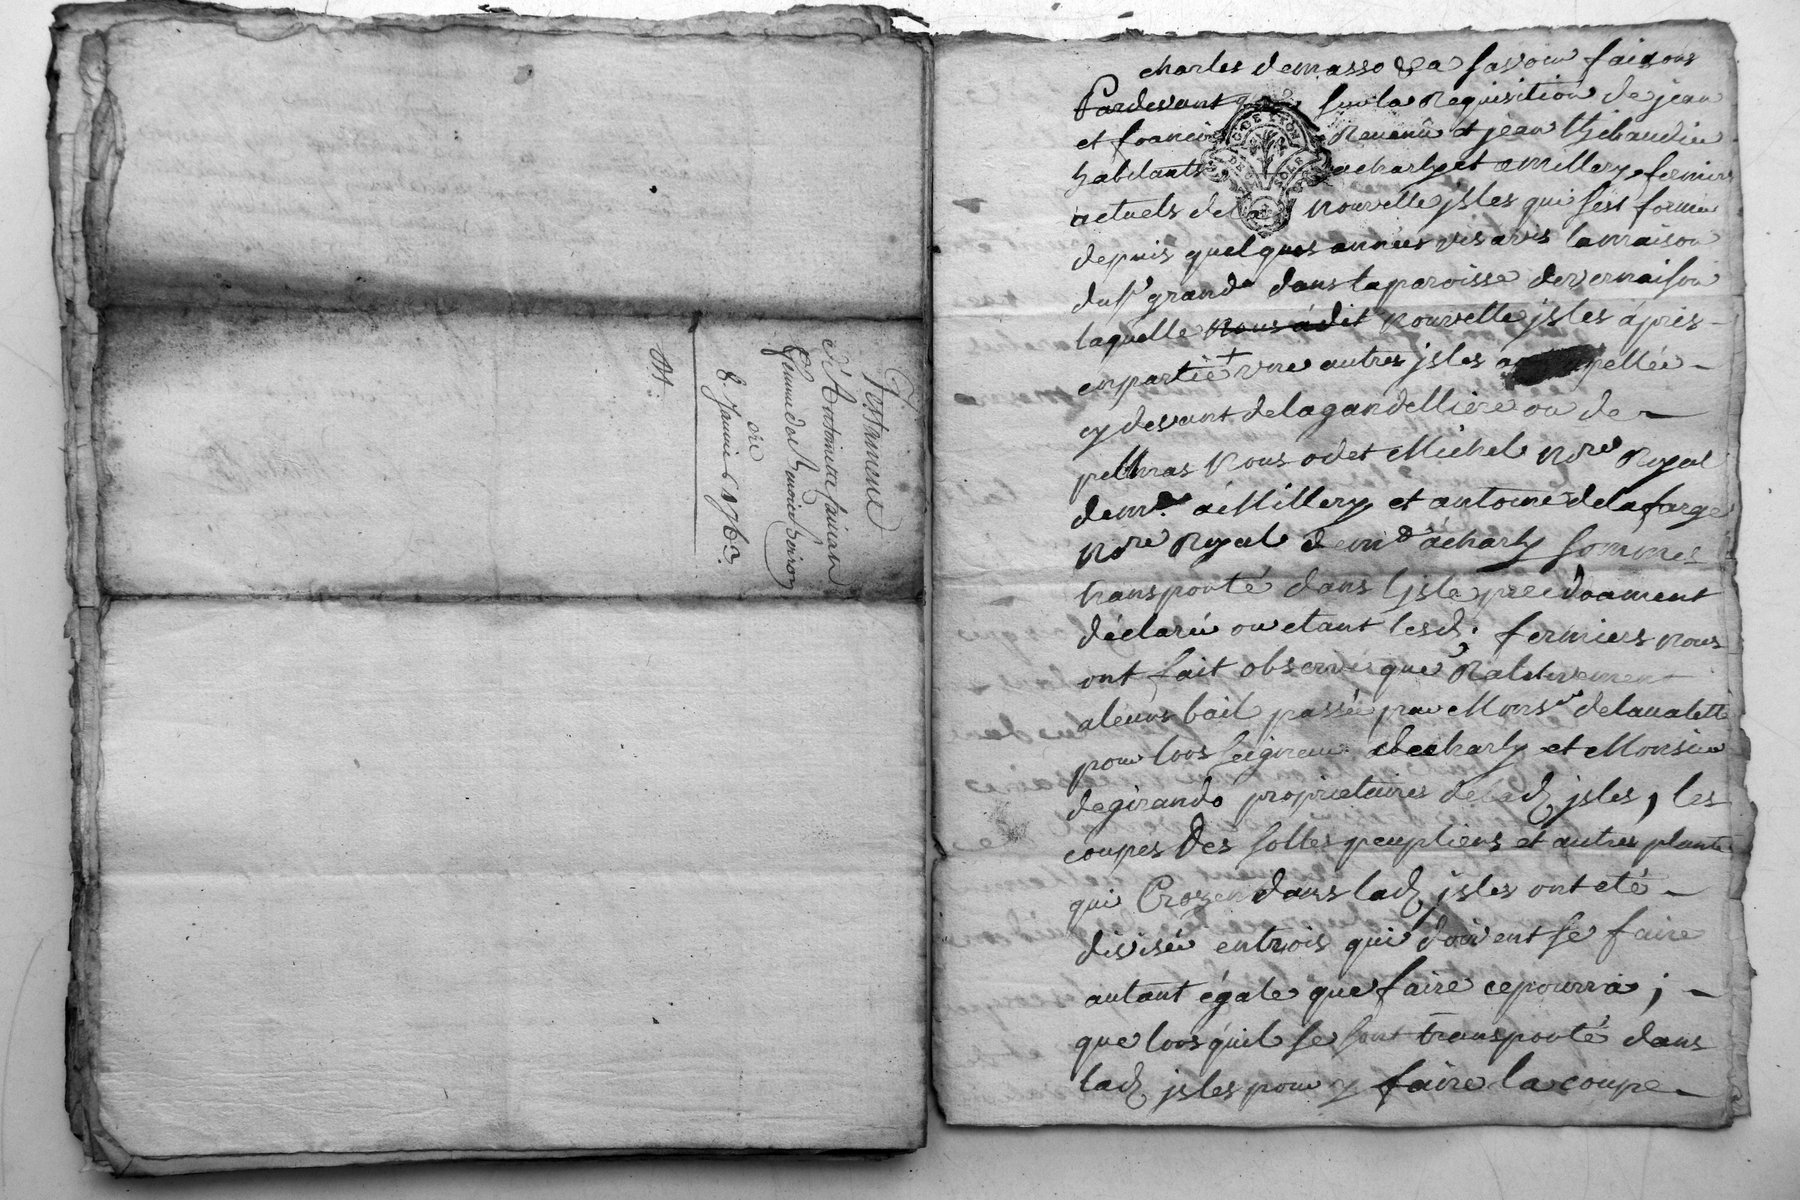 Testament
d'Antoinette
femme de Benoict
du
8. Janvier 1763.
charles demasso & a savoir faisons
Pardevant sur la Requisition de jean
et francois Revenu et jean thibaudier
habitants a charly et a Millery, fermiers
actuels de la nouvelle jsles qui sest forme
depuis quelques années vis avis la maison
du sr grand dans la paroisse de vernaison
laquelle nous a dit nouvelle jsles apris
en partie une autres jsles appellée
cy devant de la gandelliere ou de
pellmas Nous odet Michel Nore Royal
demt a Millery et antoine delafarge
Nore Royal demt a charly sommes
transporté dans ljsle precedament
declaré ou etant lesd. fermiers nous
ont fait observer que Relativement
a leurs bail passé par Monsr delavalette
pour lors seigneur de charly et Monsieur
degirando proprietaires de lad. jsles, les
coupes des solles peupliers et autres plants
qui croyen dans lad. jsles ont eté
divisé en trois qui doivent se faire
autant égale que faire ce pourra ;
que lors quil se sont transporté dans
lad. jsles pour y faire la coupe